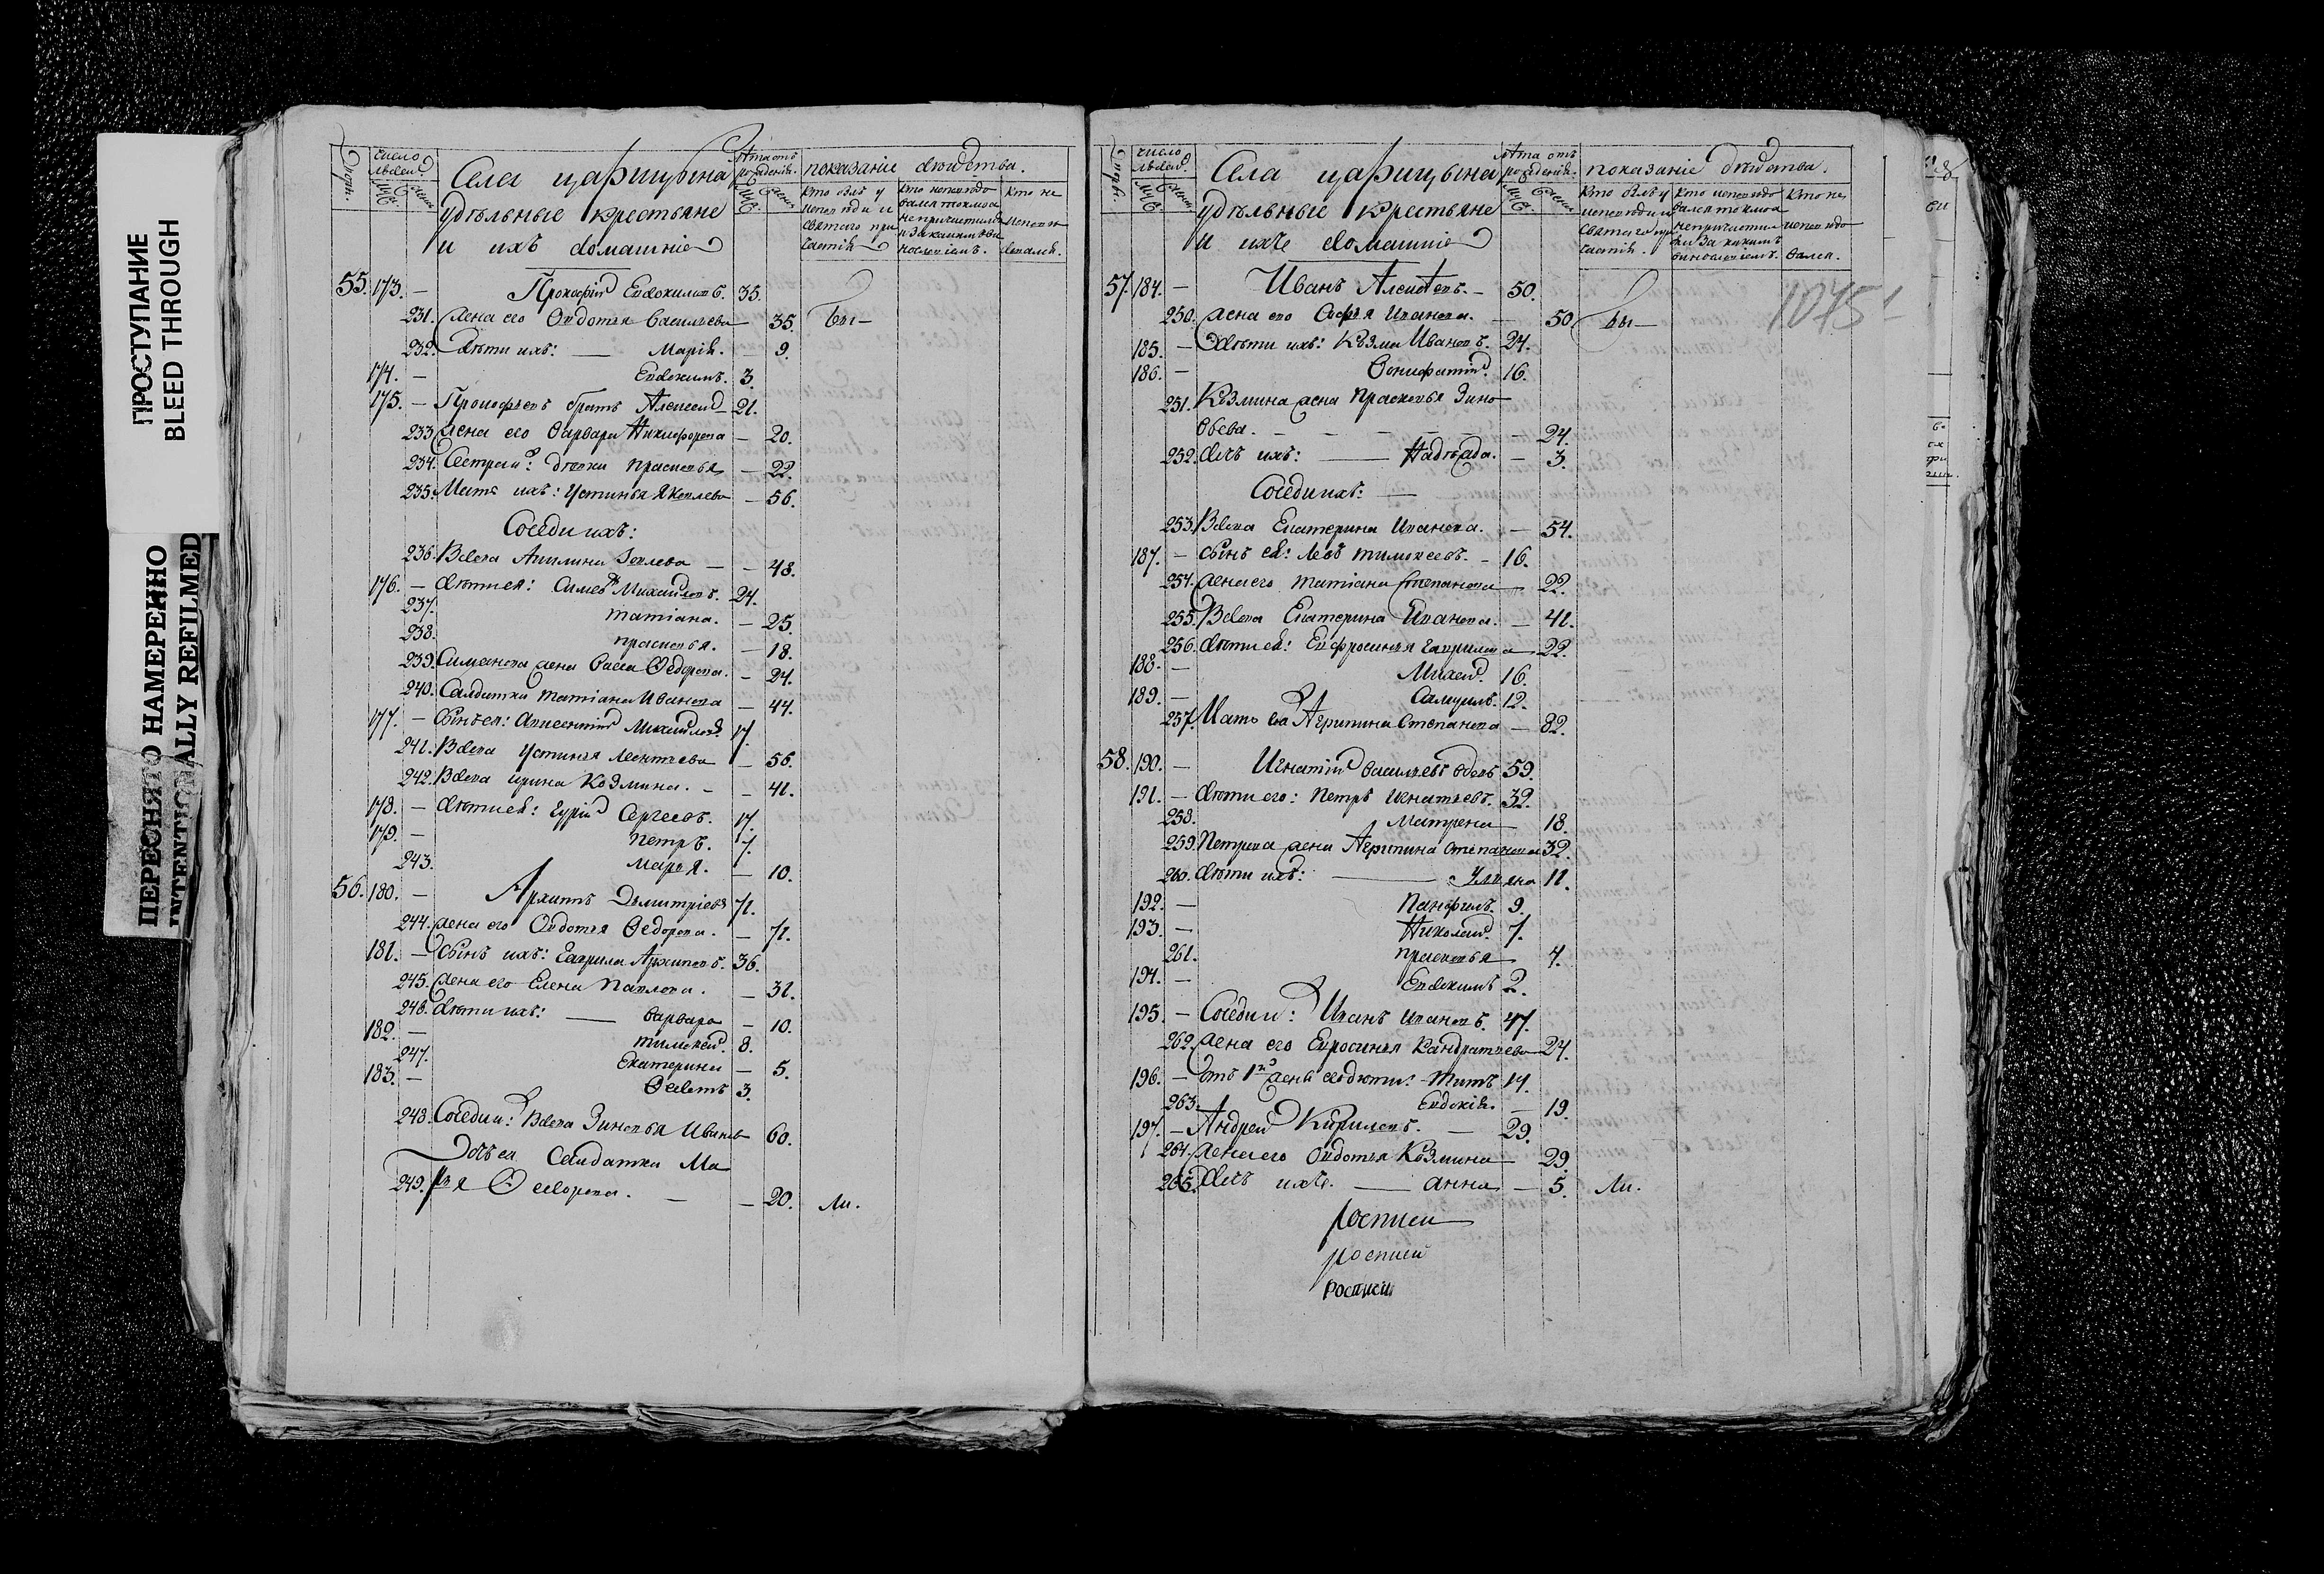 ПРОСТУПАНИЕ
BLEED THROUGH
ПЕРЕСНЯТО НАМЕРЕННО
INTENTIONALLY REFILMED
число
людей
Села Царицына
удѣльные крестьяне
и ихъ домашніе
Лѣта отъ
рожденія.
показаніе действа.
кто былъ у
исповѣди и
святаго при
частія
кто исповѣдо
вался токмо
не причастился
Кто не
исповѣ
довался.
55. 173. — Прокофій Евдокимовъ. 35.
231. жена его Овдотья Васильева — 35. бы—
232. дѣти ихъ: — Марія. — 9.
174. — Евдокимъ. 3.
175. — Прокофьевъ братъ Алексей — 21.
233 жена его Варвара Никифорова — 20.
234. Сестра и: дѣвка Прасковья — 22.
235. Мать ихъ: Устинья Яковлева — 56.
Соседи ихъ:
236. Вдова Акилина — — 48.
176. — дѣти ея: Михайловъ. 24.
237. Татіана. — 25.
238. Прасковья. — 18.
239. Симанова жена Васса Ѳедорова. — 24.
240. Салдатка Татіана Иванова — 44.
177. — Сынъ ея: Михайловъ 17.
241. Вдова Устинья Леонтьева — 56.
242. Вдова Ирина Козмина. — — 41.
178. — дѣти ея: Гурій Сергеевъ. 17.
179. — Петръ. 7.
243. Марья. — 10.
56. 180. — Архипъ Димитріевъ 71.
244. жена его Овдотья Ѳедорова. — 71.
181. — Сынъ ихъ: Гаврила Архиповъ. 36.
245. жена его Елена Павлова. — 31.
246. дѣти ихъ: — Варвара — 10.
182. — Тимофей. 8.
247. Екатерина — 5.
183. — Ѳедотъ 3.
248. Соседи и: Вдова Зиновья Иванов 60.
Дочь ея Салдатка Ма
249. рья Ѳедорова. — — 20. ли.
число
людей
Села Царицына
удѣльные крестьяне
и ихъ домашніе
Лѣта отъ
рожденія.
показаніе действа.
Кто былъ у
исповѣди и
святаго при
частія.
Кто исповѣдо
вался токмо
не причастился
Кто не
исповѣдо
вался.
1075
57. 184. — Иванъ Алексѣевъ. — 50.
250. жена его Софья Иванова. — 50 бы—
185. — Дѣти ихъ: Козма Ивановъ. 24.
186. — Вонифатій. 16.
251. Козмина жена Прасковья Зино
вьева. — — — — 24.
252. дочь ихъ: — Надѣжда. — 3.
Соседи ихъ: —
253. Вдова Екатерина Иванова. — 54.
187. — сынъ ея: Левъ Тимофеевъ. — 16.
254. жена его Татіана Степанова — 22.
255. Вдова Екатерина Иванова. — 41.
256. дѣти ея: Евфросинья Гаврилова — 22.
188. — Михей. 16.
189. — Самуилъ. 12.
257. Мать ея Агрипина Степанова — 82.
58. 190. — Игнатій Васильевъ вдовъ 59.
191. — дѣти его: Петръ Игнатьевъ. 32.
258. Матрена — 18.
259. Петрова жена Агрипина Степанова 32.
260. дѣти ихъ: — Ульяна 11.
192. — Панфилъ. 9.
193. — Николай. 7.
261. Прасковья 4.
194. — Евдокимъ 2.
195. — Соседи и: Иванъ Ивановъ. 47.
262. жена его Евросинья Кандратьева 24.
196. — отъ 1й жены его дѣти: Титъ 14.
263. Евдокія. — 19.
197. — Андрей Кириловъ. — 29.
264. жена его Овдотья Козмина — 29.
265. Дочь ихъ. — Анна — 5. ли.
росписи
росписи
росписи